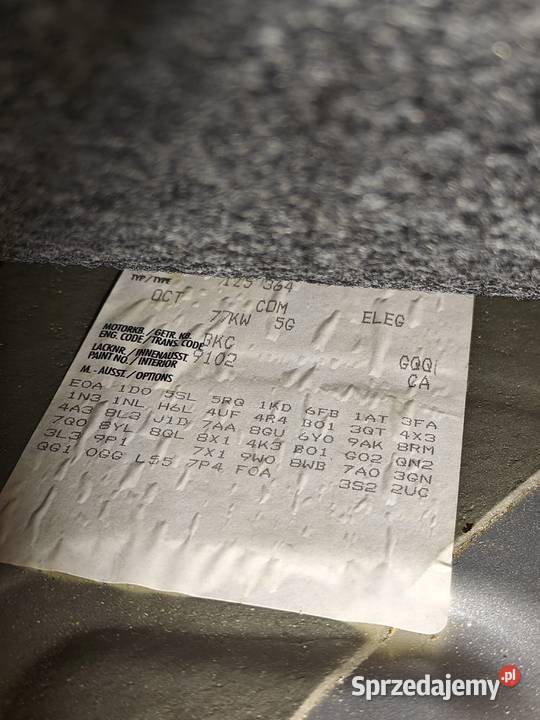 TYP/TYPE 1Z5 364
OCT COM ELEG
77KW 5G
MOTORKB./GETR. KB.
ENG. CODE/TRANS. CODE BKC GQQ
LACKNR./INNENAUSST. 9102 CA
PAINT NO./INTERIOR
M.-AUSST./OPTIONS
E0A 1D0 5SL 5RQ 1KD 6FB 1AT 3FA
1N3 1NL H6L 4UF 4R4 B01 3QT 4X3
4A3 8L3 J1D 7AA 8GU 6Y0 9AK 8RM
7Q0 8YL 8QL 8X1 4K3 B01 G02 QN2
3L3 9P1 7X1 9W0 8WB 7A0 3GN
QG1 0GG L$5 7P4 F0A 3S2 2UC
Sprzedajemy.pl